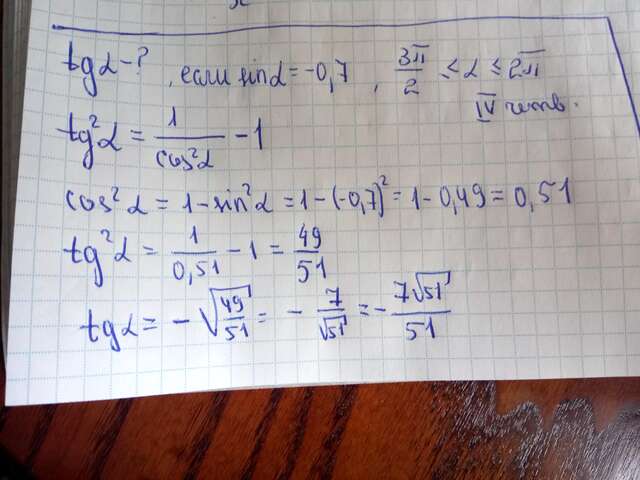 tgα - ? , если sinα = -0,7 , 3π/2 ≤ α ≤ 2π
IV четв.
tg²α = 1/cos²α - 1
cos²α = 1 - sin²α = 1 - (-0,7)² = 1 - 0,49 = 0,51
tg²α = 1/0,51 - 1 = 49/51
tgα = -√(49/51) = - 7/√51 = - 7√51/51